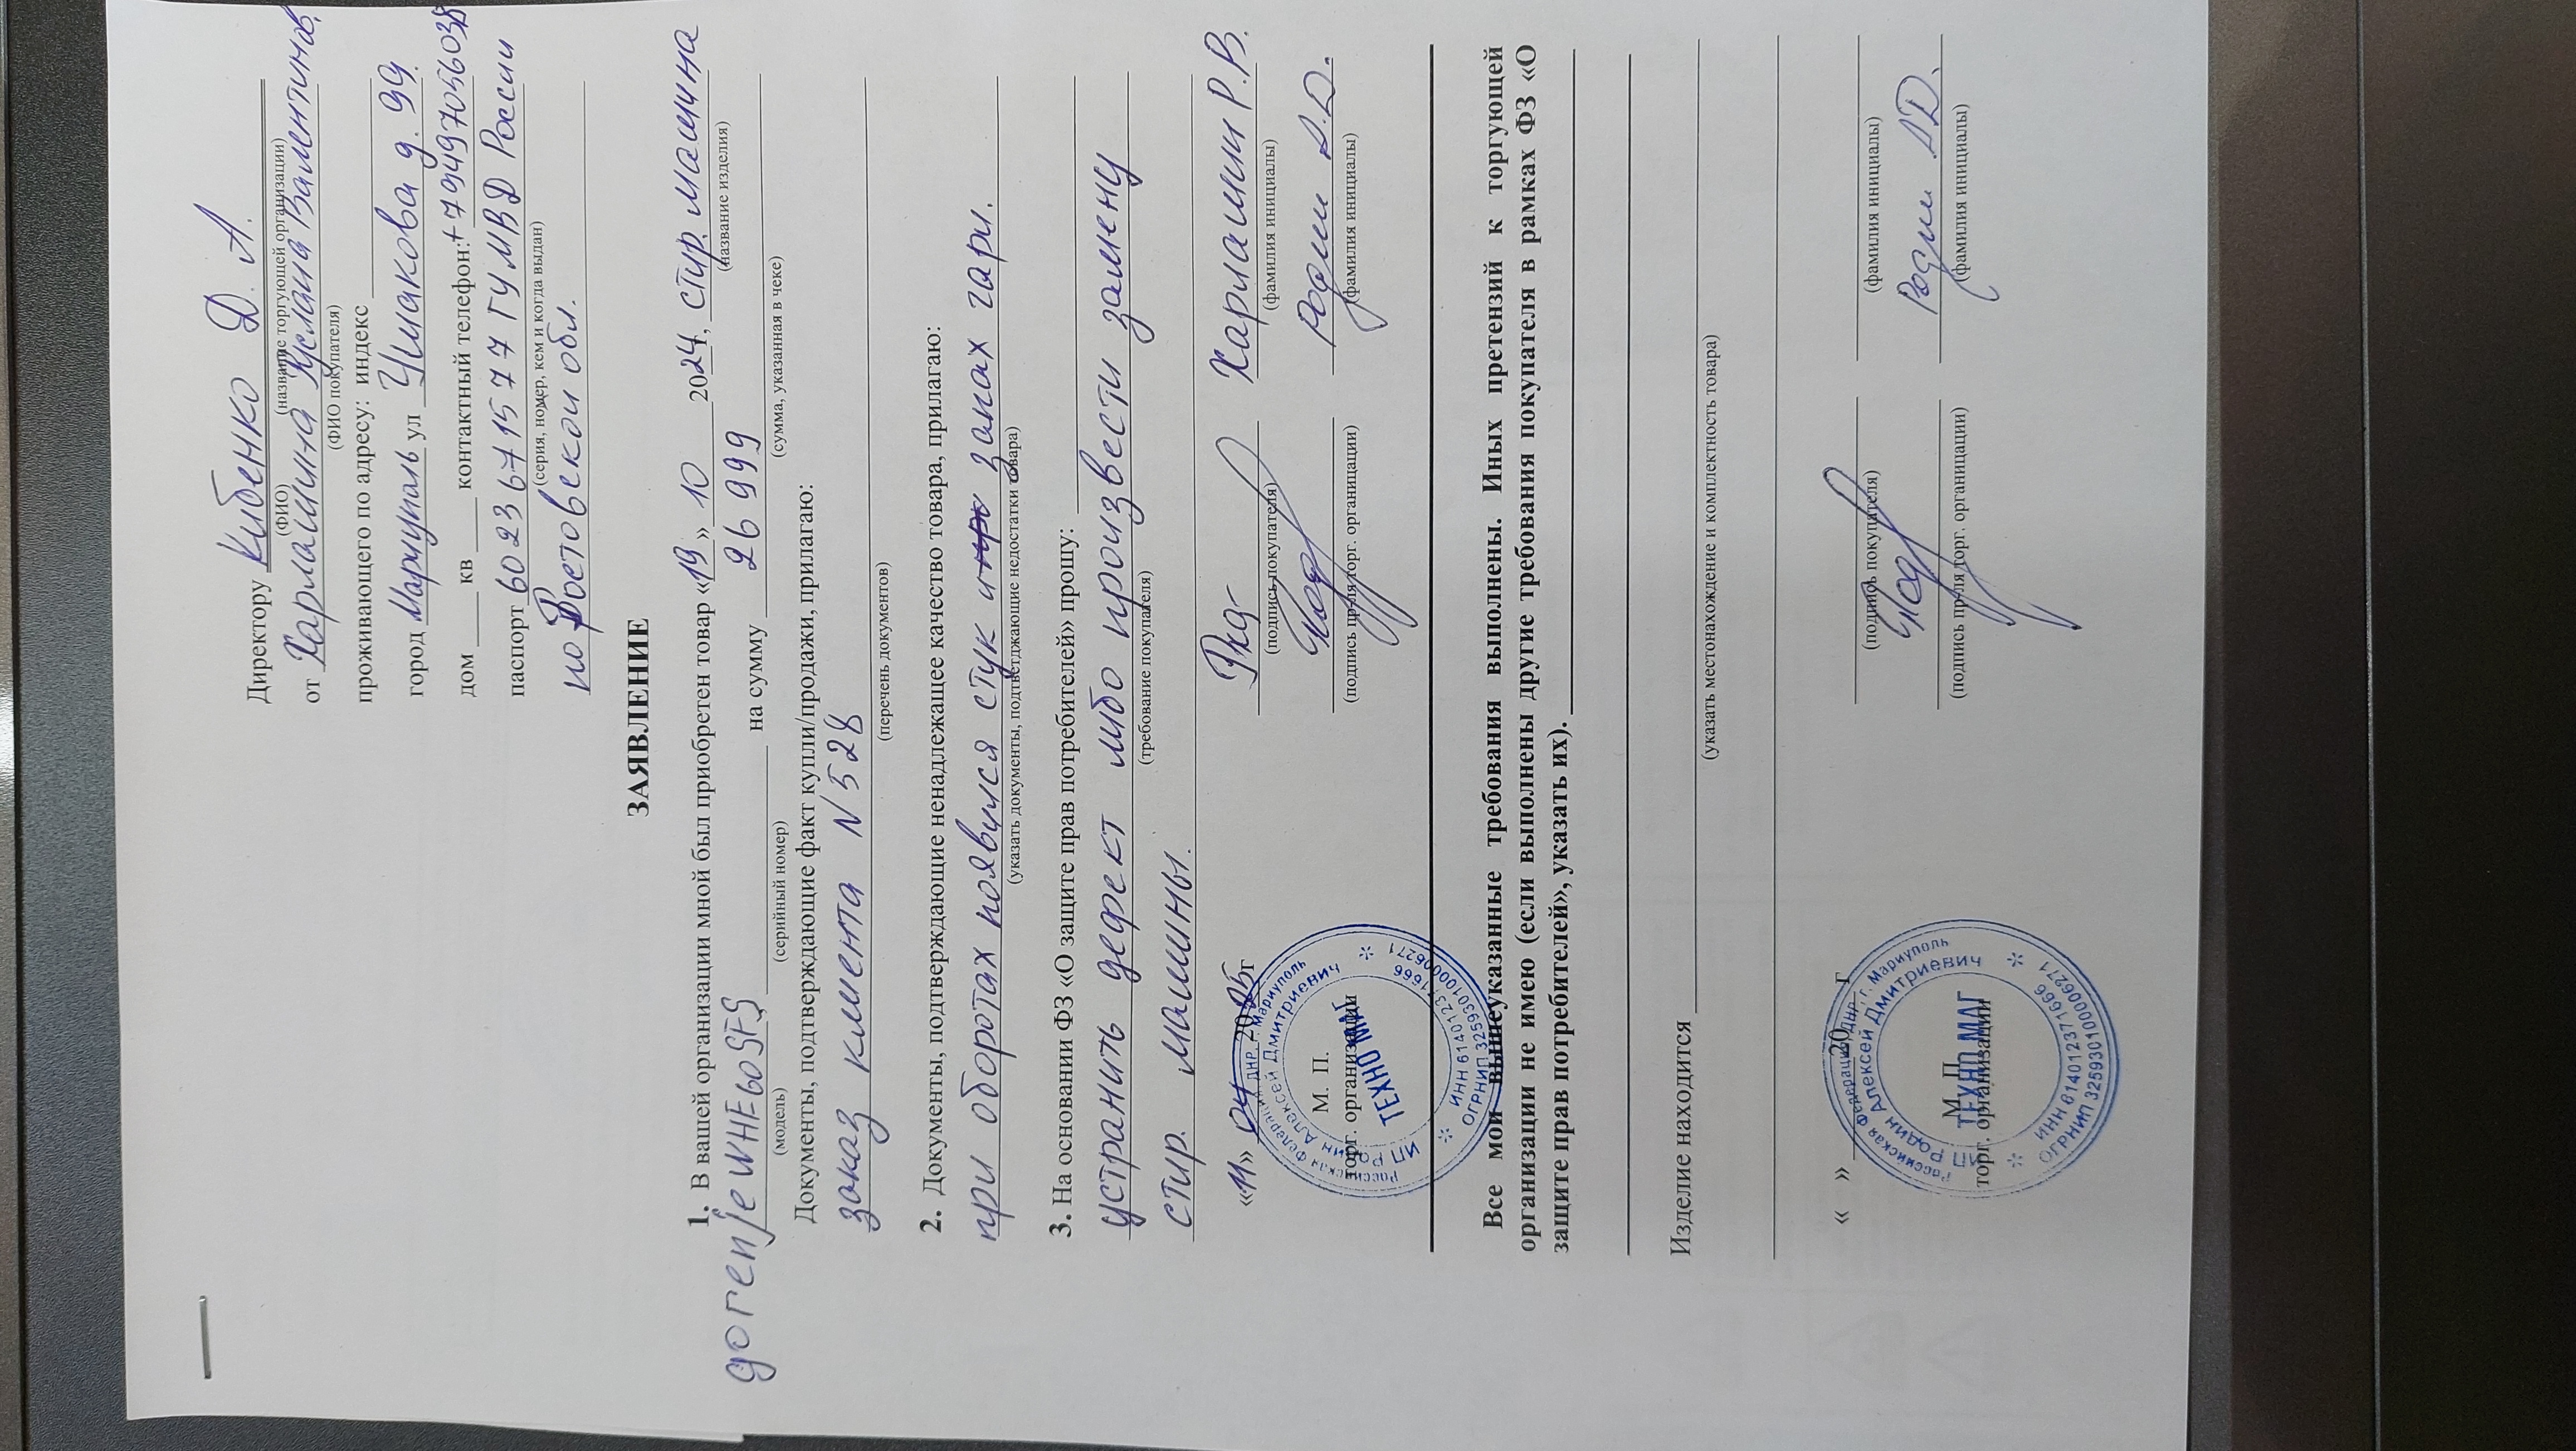 Директору Кибенко Д. А.
(ФИО) (название торгующей организации)
от Харламина Руслана Валентинов.
(ФИО покупателя)
проживающего по адресу: индекс
город Мариуполь ул Чмакова д. 99.
дом ____ кв ____ контактный телефон:+79497056038
паспорт 6023 671577 ГУ МВД России
(серия, номер, кем и когда выдан)
по Ростовской обл.
ЗАЯВЛЕНИЕ
1. В вашей организации мной был приобретен товар «19» 10 2024, стир. машина
(название изделия)
gorenje WHE60SFS на сумму 26 999
(модель) (серийный номер) (сумма, указанная в чеке)
Документы, подтверждающие факт купли/продажи, прилагаю:
заказ клиента N 528
(перечень документов)
2. Документы, подтверждающие ненадлежащее качество товара, прилагаю:
при оборотах появился стук запах гари.
(указать документы, подтверждающие недостатки товара)
3. На основании ФЗ «О защите прав потребителей» прошу:
устранить дефект либо произвести замену
(требование покупателя)
стир. машины.
«11» 04 2025г Харламин Р.В.
(подпись покупателя) (фамилия инициалы)
М. П.
торг. организации Родин А.Д.
(подпись пр-ля торг. организации) (фамилия инициалы)
Российская Федерация, ДНР, г. Мариуполь
ИП Родин Алексей Дмитриевич
ТЕХНО МАГ
ИНН 614012371666
ОГРНИП 325930100006271
Все мои вышеуказанные требования выполнены. Иных претензий к торгующей
организации не имею (если выполнены другие требования покупателя в рамках ФЗ «О
защите прав потребителей», указать их).
Изделие находится
(указать местонахождение и комплектность товара)
« » 20 г
(подпись покупателя) (фамилия инициалы)
М. П.
торг. организации Родин А.Д.
(подпись пр-ля торг. организации) (фамилия инициалы)
Российская Федерация, ДНР, г. Мариуполь
ИП Родин Алексей Дмитриевич
ТЕХНО МАГ
ИНН 614012371666
ОГРНИП 325930100006271